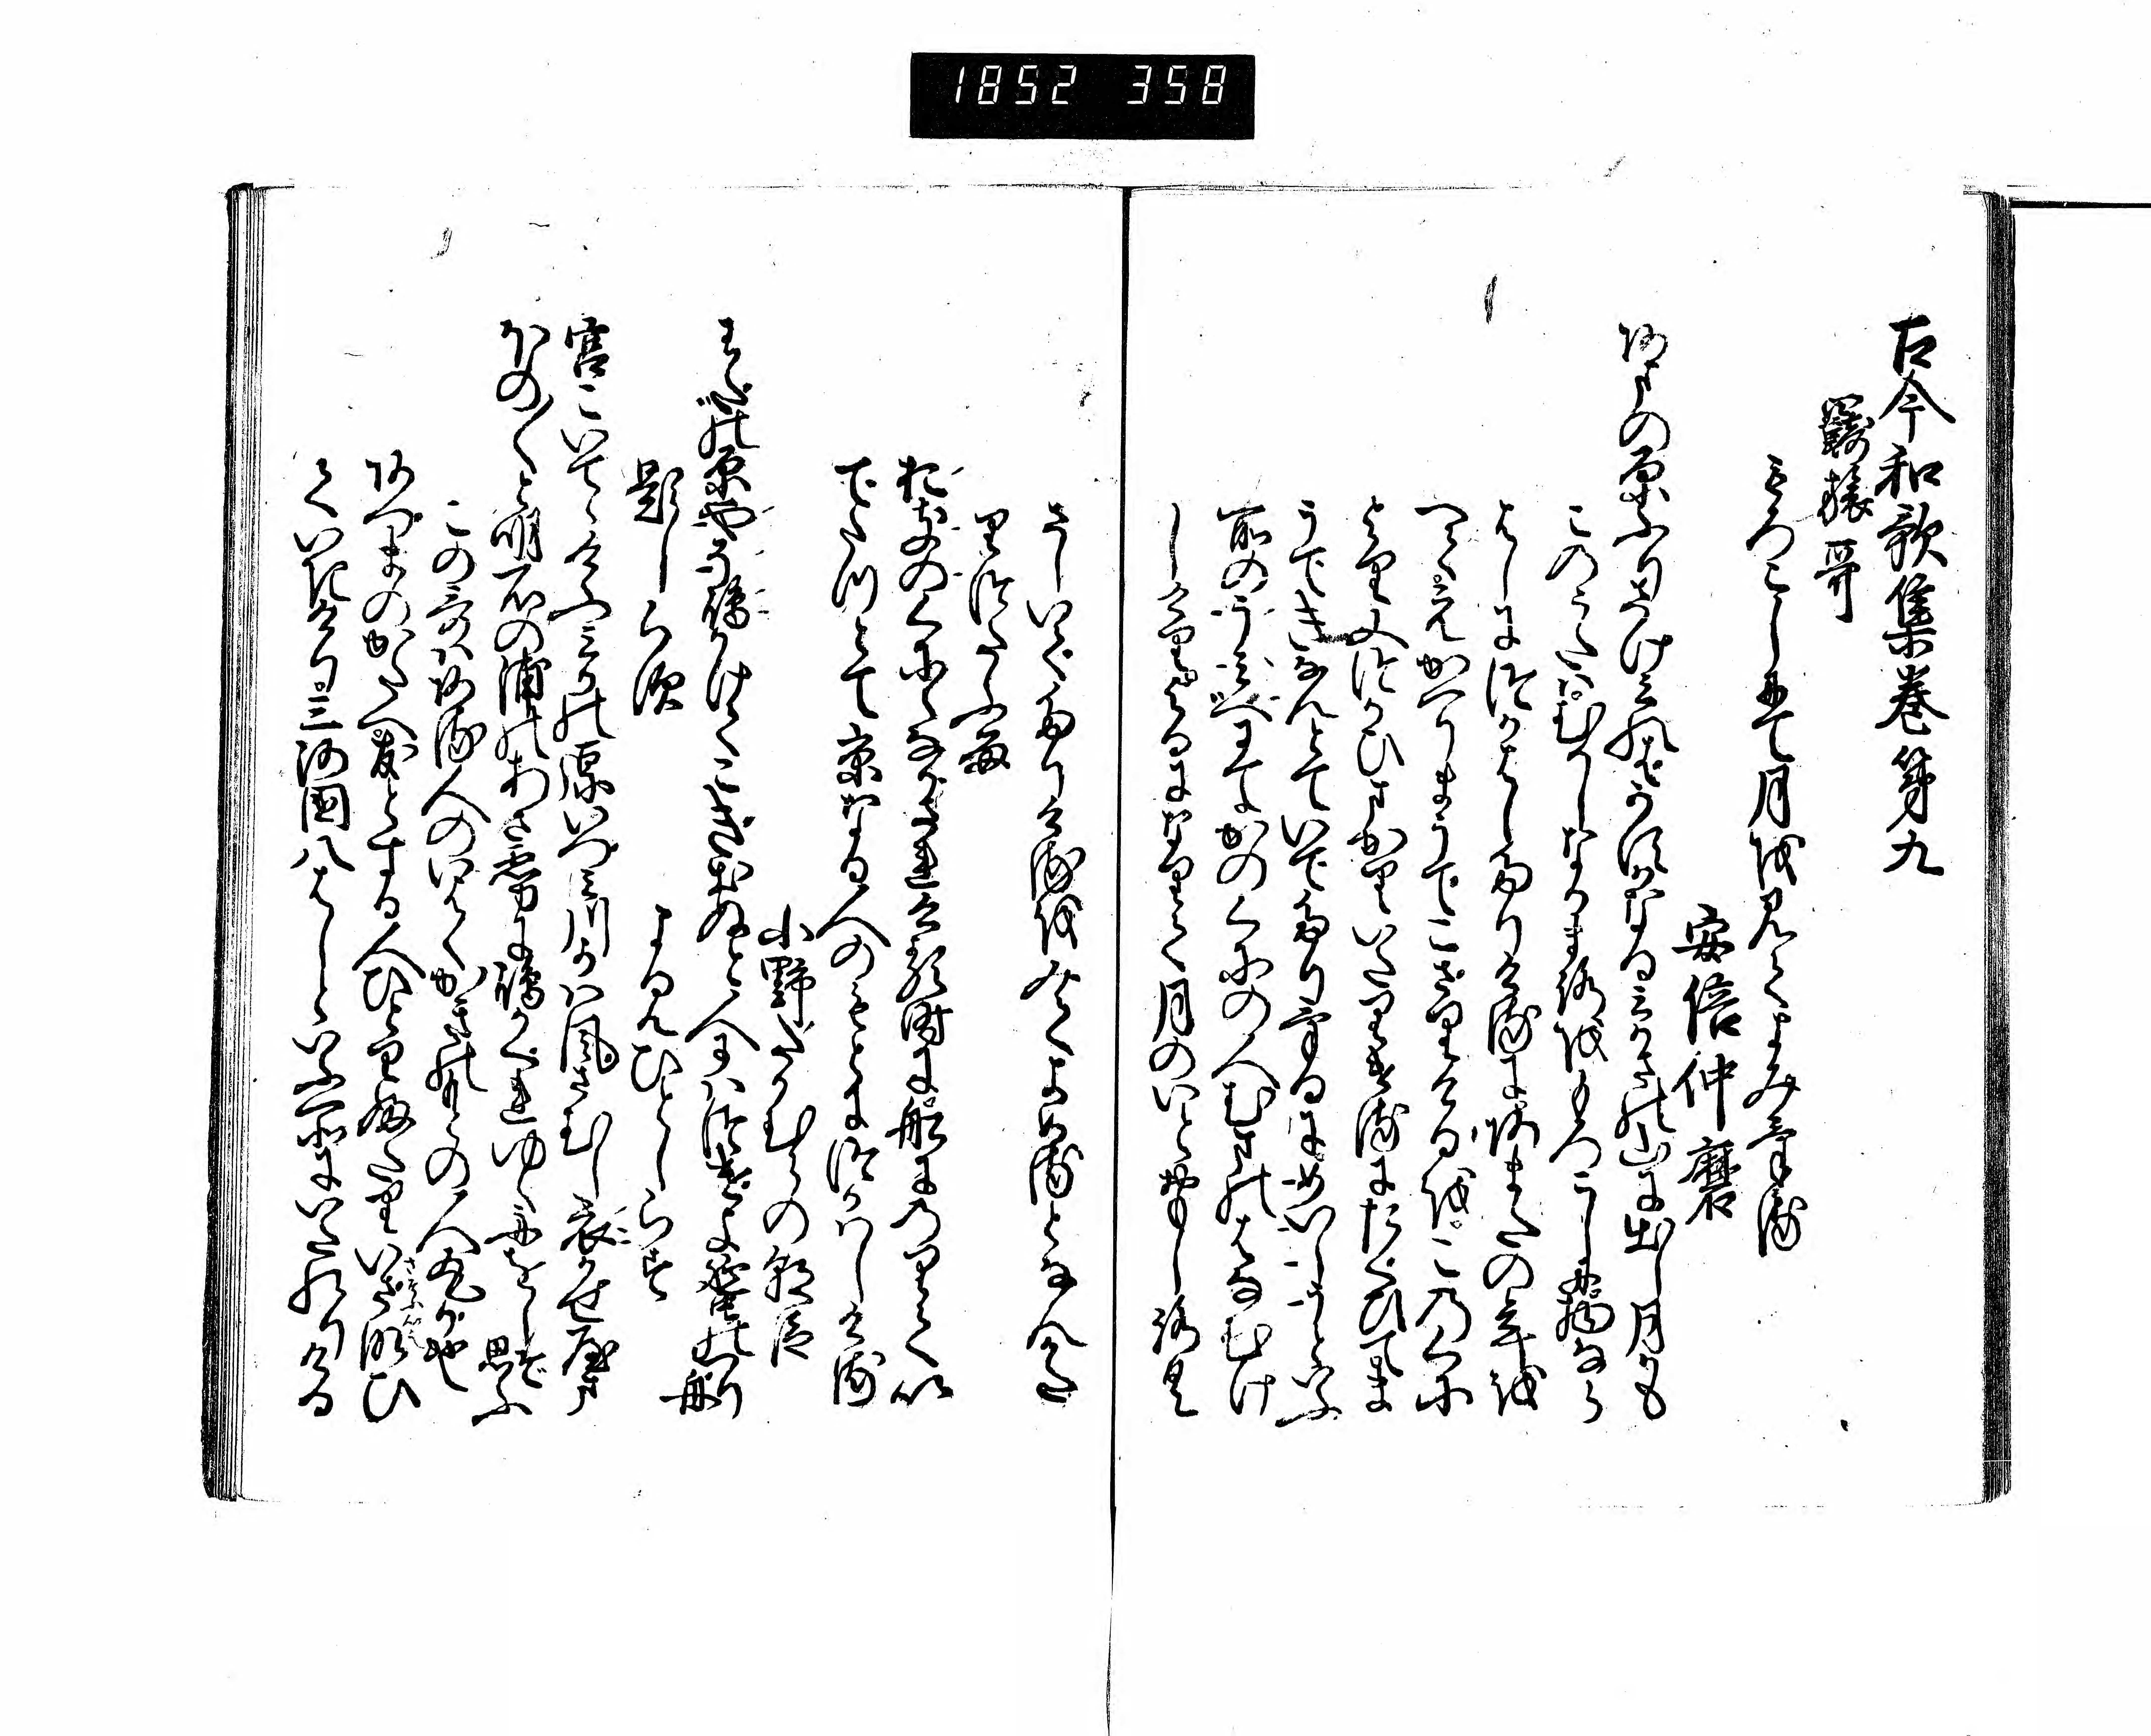 1852 358
古今和歌集巻第九
羈旅哥
もろこしにて月を見てよみける
安倍仲磨
あまの原ふりさけみれはかすかなるみかさの山に出し月かも
このうたはむかしなかまろをもろこしに物なら
はしにつかはしたりけるにあまたの年を
へてえかへりまうてこさりけるをこのくに
より又つかひまかりいたりけるにたくひてま
うてきなんとていてたりけるにめいしうといふ
所のうみへにてかのくにの人むまのはなむけ
しけりよるになりて月のいとおもしろく
さしいてたりけるをみてよめるとなんかた
りつたふる
おきのくにになかされける時に船にのりてい
てたつとて京なる人のもとにつかはしける
小野たかむらの朝臣
わたの原やそ嶋かけてこきいてぬと人にはつけよ蜑のつり舟
題しらす
よみひとしらす
宮こいてゝけふみかの原いつみ川かは風さむし衣かせ山
ほの〱と明石の浦のあさ霧に嶋かくれゆく舟をしそ思ふ
この哥はある人のいはくかきの本の人丸か也
あつまのかたへ友とする人ひとりふたりいさなひ
ていきけり三河国八はしといふ所にいたれりける